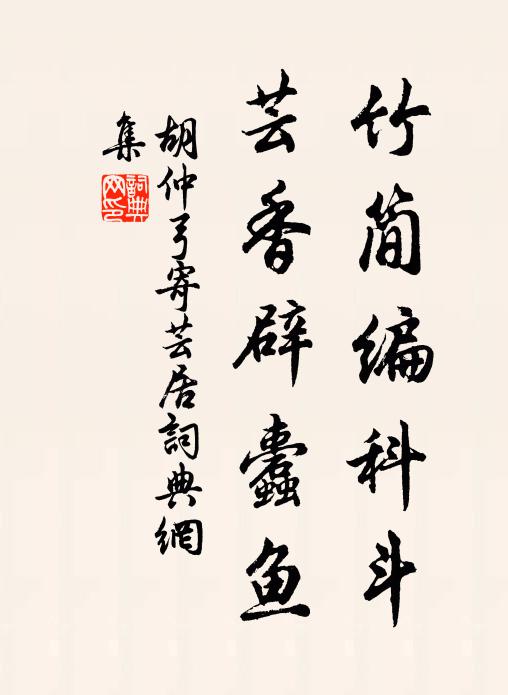 竹简编科斗
芸香辟蠹鱼
胡仲弓寄芸居詞典網
集
詞典网印